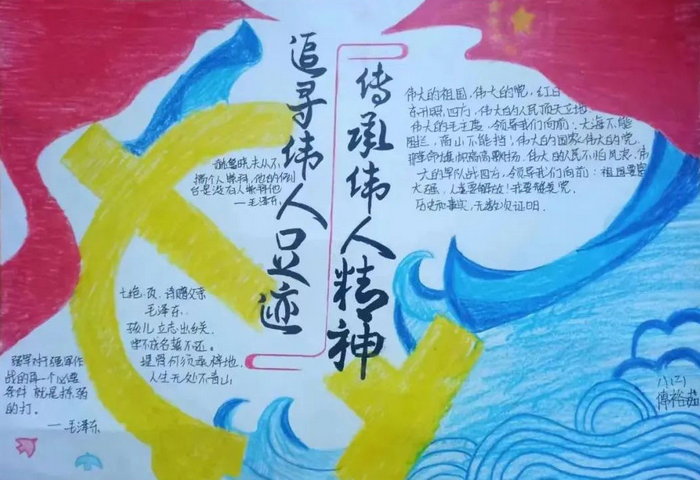 追寻伟人足迹
传承伟人精神
伟大的祖国,伟大的党,红日
东升照四方,伟大的人民顶天立地,
伟大的毛主席,领导我们向前:大海不能
阻拦,高山不能挡!伟大的国家伟大的党,
革命红旗高高飘扬,伟大的人民不怕风浪,伟
大的军队战四方,领导我们向前:祖国要富
大强,人类要解放!我要赞美党.
历史和事实,无数次证明.
搞个人崇拜,他的例
台是没有人崇拜他
—毛泽东.
七绝.改.诗赠父亲
毛泽东.
孩儿立志出乡关.
学不成名誓不还。
埋骨何须桑梓地.
人生无处不青山
强军对打强军作
战的再一个必要
条件就是拣弱
的打.
—毛泽东
八(2)
傅裕茹